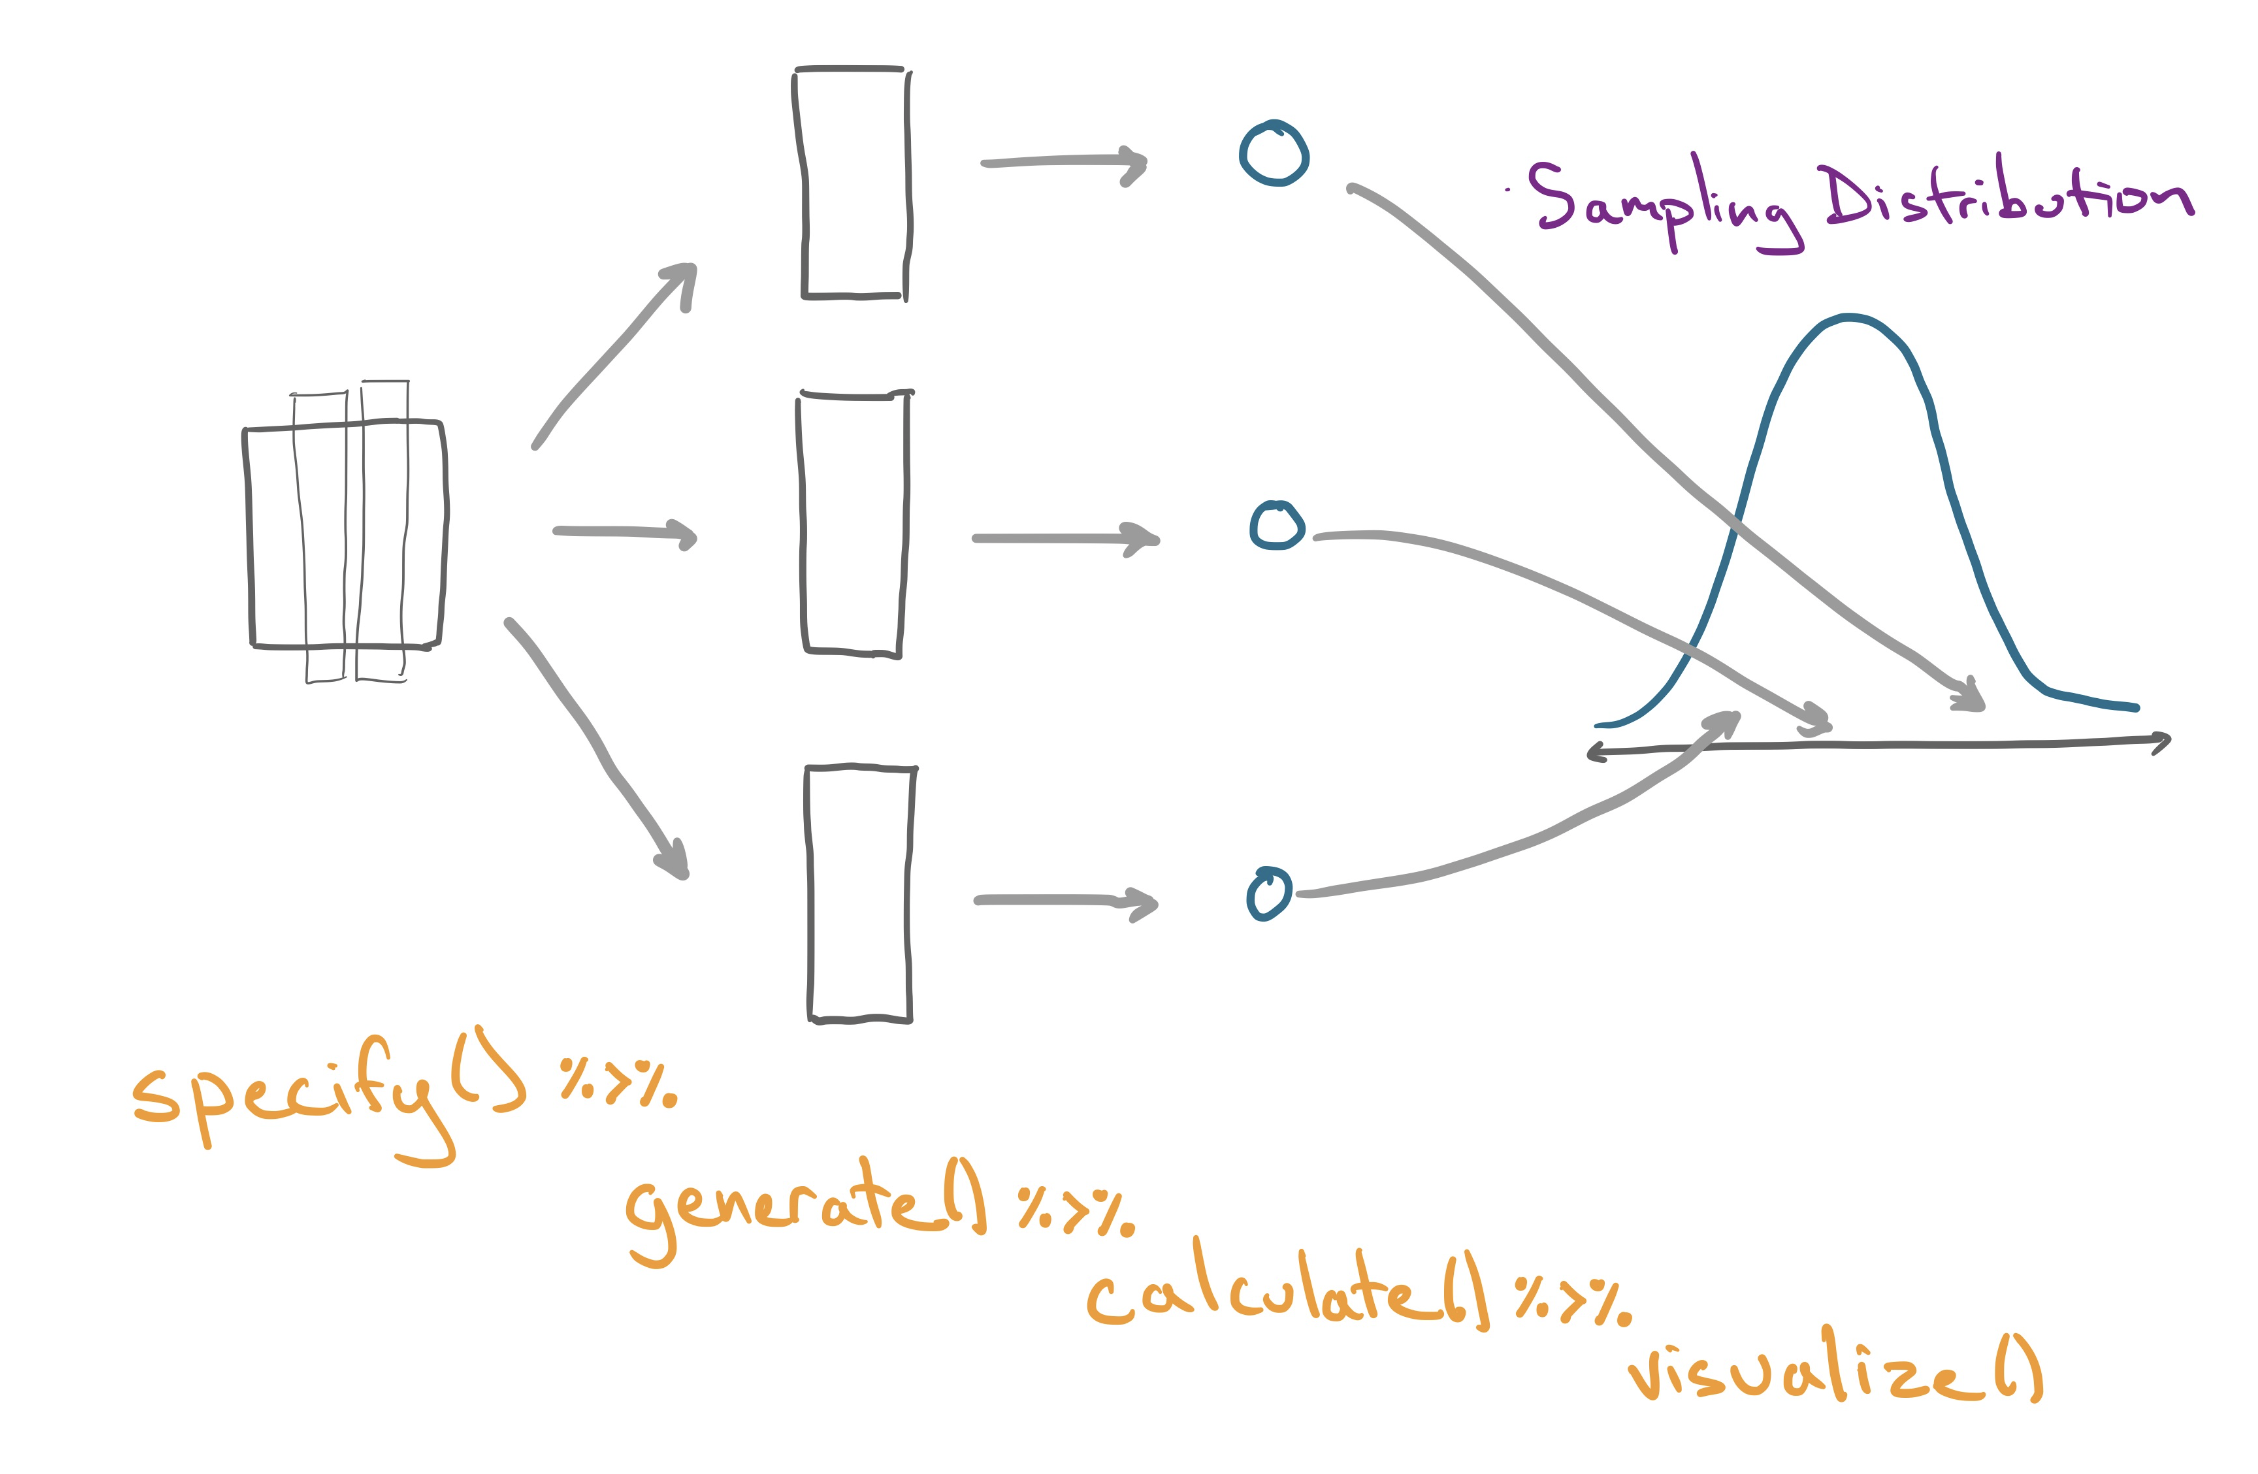 Sampling Distribution
specify() %>%
generate() %>%
calculate() %>%
visualize()